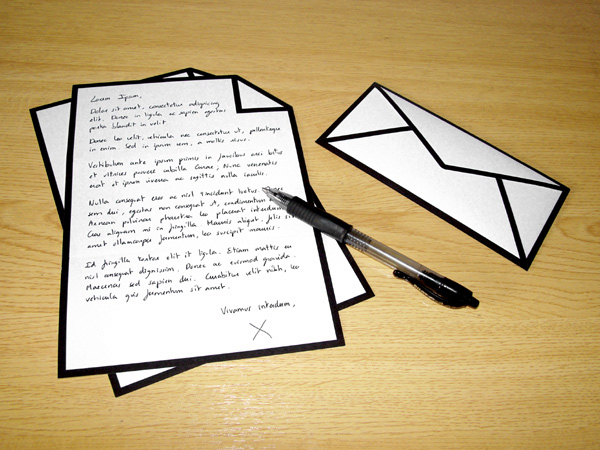 Lorem Ipsum,
Dolor sit amet, consectetur adipiscing
elit. Donec in ligula ac sapien egestas
porta blandit in velit
Donec leo velit, vehicula nec consectetur ut, pellentesque
in enim. Sed in ipsum sem, a mollis risus.
Vestibulum ante ipsum primis in faucibus orci luctus
et ultrices posuere cubilia Curae; Nunc venenatis
erat et ipsum viverra ac sagittis nulla iaculis.
Nulla consequat eros ac nisl tincidunt
sem dui, egestas non consequat condimentum
Aenean pulvinar pharetra leo placerat interdum.
Cras aliquam mi in fringilla Mauris aliquet felis
amet ullamcorper fermentum, leo suscipit mauris.
Id fringilla tortor elit it ligula. Etiam mattis eu
nisl consequat dignissim. Donec ac euismod gravida.
Maecenas sed sapien dui. Curabitur velit nibh, leo
vehicula quis fermentum sit amet.
Vivamus interdum,
X